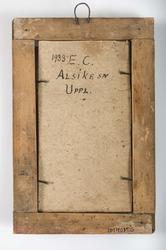 1933 E. C.
ALSIKE SN
UPPL.